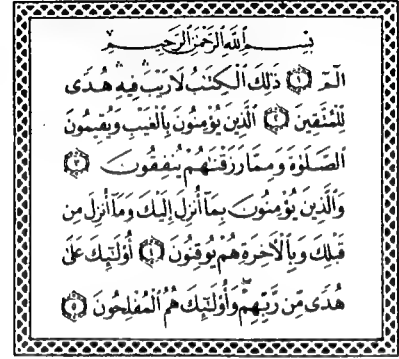 بِسْمِ اللَّهِ الرَّحْمَٰنِ الرَّحِيمِ
الٓمٓ ۝١ ذَٰلِكَ الْكِتَٰبُ لَا رَيْبَ ۛ فِيهِ ۛ هُدًى
لِّلْمُتَّقِينَ ۝٢ الَّذِينَ يُؤْمِنُونَ بِالْغَيْبِ وَيُقِيمُونَ
الصَّلَوٰةَ وَمِمَّا رَزَقْنَٰهُمْ يُنفِقُونَ ۝٣
وَالَّذِينَ يُؤْمِنُونَ بِمَآ أُنزِلَ إِلَيْكَ وَمَآ أُنزِلَ مِن
قَبْلِكَ وَبِالْأَخِرَةِ هُمْ يُوقِنُونَ ۝٤ أُو۟لَٰٓئِكَ عَلَىٰ
هُدًى مِّن رَّبِّهِمْ ۖ وَأُو۟لَٰٓئِكَ هُمُ الْمُفْلِحُونَ ۝٥